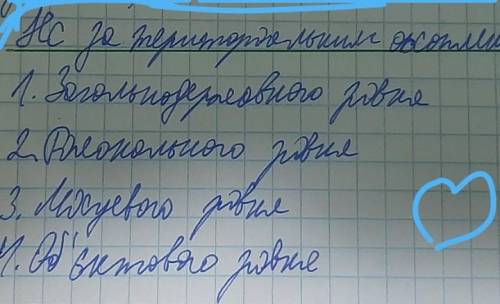 НС за територіальним охоплен
1. Загальнодержавного рівня
2. Регіонального рівня
3. Місцевого рівня
4. Об'єктового рівня